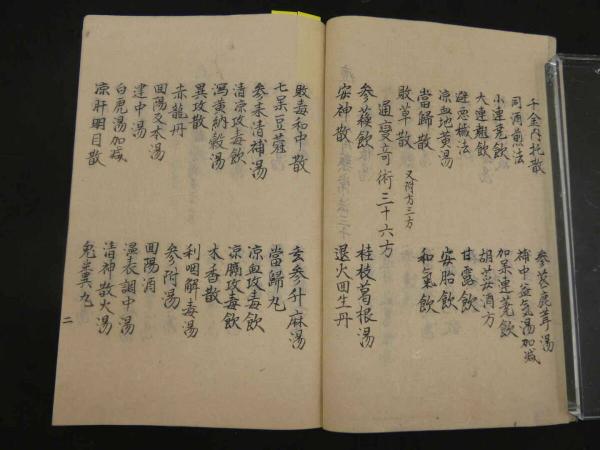 千金內托散
參茋鹿茸湯
同酒煎法
補中益氣湯加減
小連翹飲
加味連翹飲
大連翹飲
胡荽酒方
避惡穢法
甘露飲
凉血地黄湯
安胎飲
當歸散
和氣飲
敗草散
又附方三方
通變奇術三十六方
參蘇飲
桂枝葛根湯
安神散
退火回生丹
敗毒和中散
玄參升麻湯
七味豆蔻湯
當歸丸
參禾清補湯
凉血攻毒飲
清凉攻毒飲
凉膈攻毒飲
瀉黄納穀湯
木香散
異攻散
利咽解毒湯
赤龍丹
參附湯
回陽又本湯
回陽酒
建中湯
溫表調中湯
白虎湯加减
清神散火湯
凉肝明目散
兔血丸
二